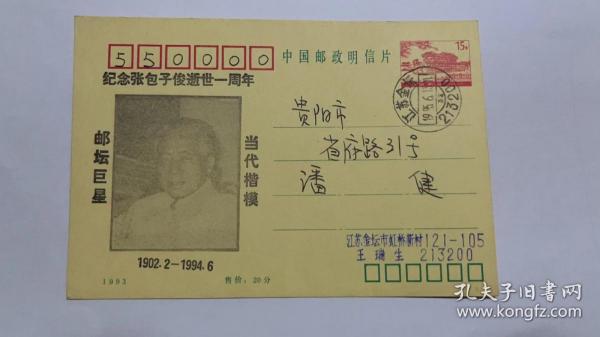 550000
中国邮政明信片
15分
纪念张包子俊逝世一周年
邮坛巨星
当代楷模
1902.2—1994.6
1993
售价：20分
贵阳市
省府路31号
潘 健
江苏金坛
213200
江苏金坛市虹桥新村121-105
王瑞生 213200
孔夫子旧书网
www.kongfz.com